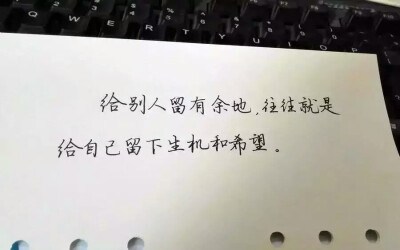 Q W E R T Y U I O P
给别人留有余地，往往就是
给自己留下生机和希望。